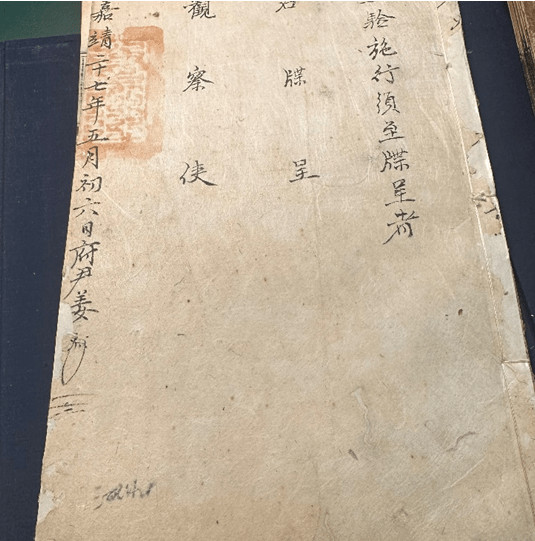 驗施行須至牒呈者
右牒呈
觀察使
嘉靖二十七年五月初六日府尹姜